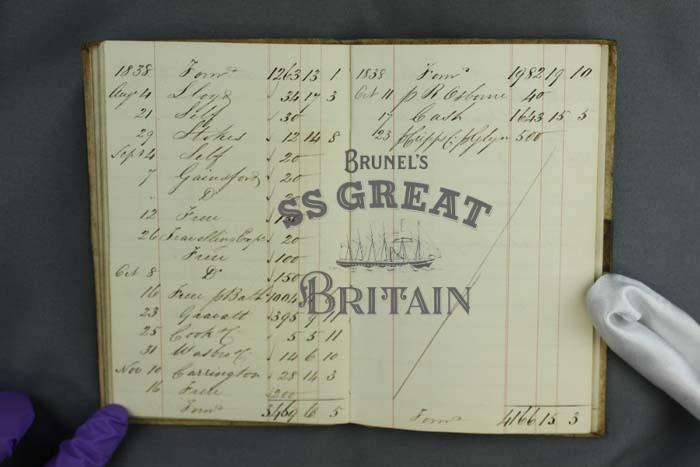 1838 Forwd 1263 13 1
Augt 4 Lloyd 34 17 3
21 Self 30
29 Stokes 12 14 8
Sept 4 Self 20
7 Gainsford 20
" Do
12 Free 150
26 Travelling Exps 20
Free 100
Oct 8 Do 150
16 Free p Bath
23 Gravatt 395 9 11
25 Cook & C 5 5 11
31 14 6 10
Nov 10 Carrington 28 14 3
16 Free 200
Forwd 3469 6 5
1838 Forwd 1982 19 10
Oct 11 p R Osborne 40
17 Cash 1643 15 5
23 500
Forwd 4166 15 3
BRUNEL'S
SS GREAT
BRITAIN